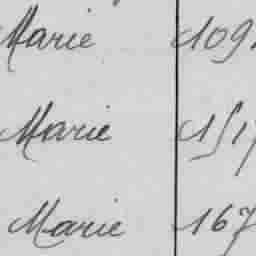 Marie 109
Marie 151
Marie 167